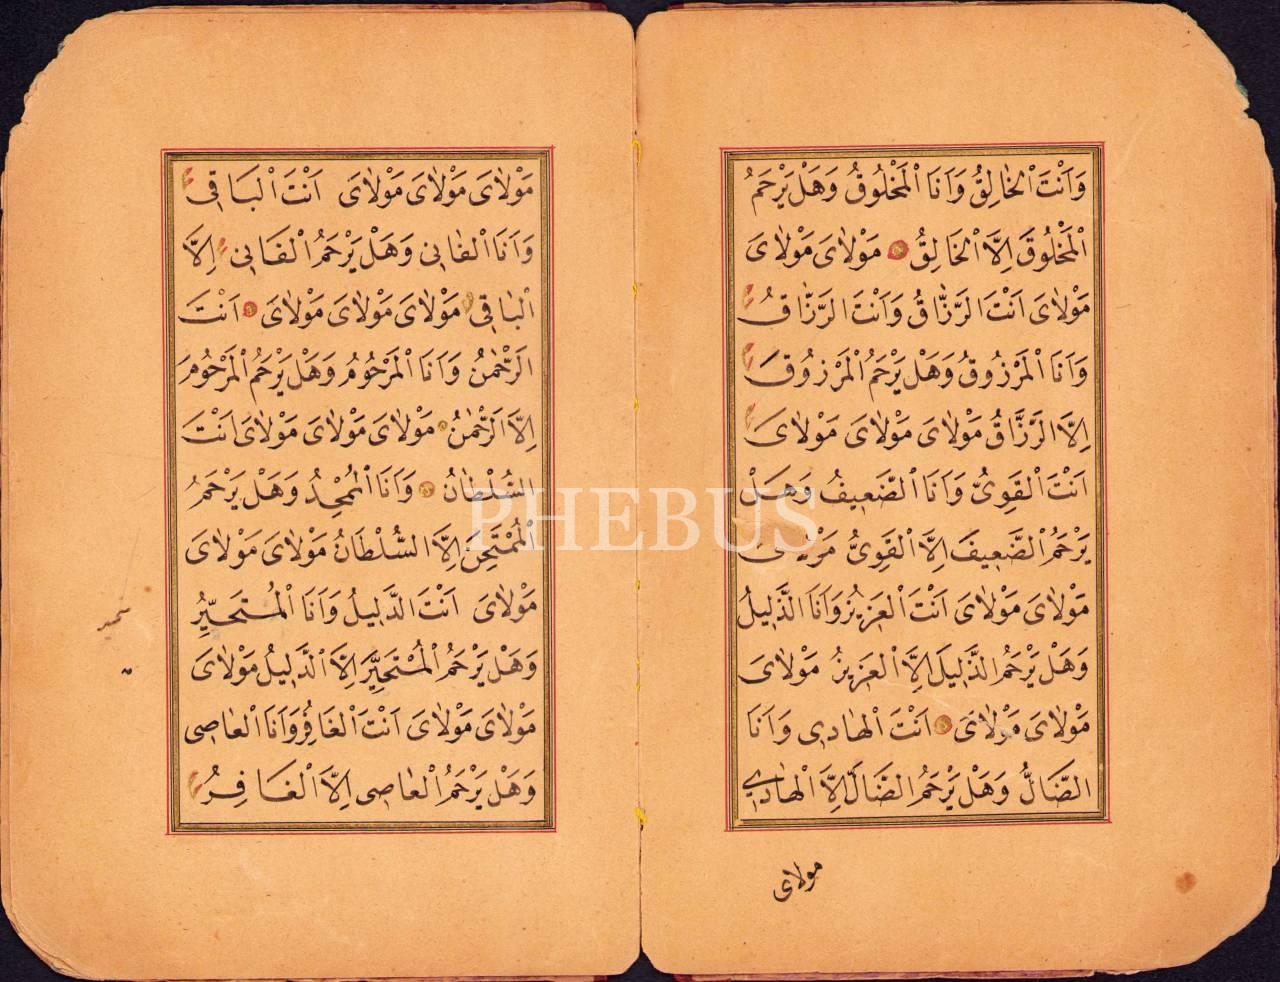 وَاَنْتَ الْخَالِقُ وَاَنَا الْمَخْلُوقُ وَهَلْ يَرْحَمُ
الْمَخْلُوقَ اِلَّا الْخَالِقُ مَوْلَاىَ مَوْلَاىَ
مَوْلَاىَ اَنْتَ الرَّزَّاقُ وَاَنْتَ الرَّزَّاقُ
وَاَنَا الْمَرْزُوقُ وَهَلْ يَرْحَمُ الْمَرْزُوقَ
اِلَّا الرَّزَّاقُ مَوْلَاىَ مَوْلَاىَ مَوْلَاىَ
اَنْتَ الْقَوِىُّ وَاَنَا الضَّعِيفُ وَهَلْ
يَرْحَمُ الضَّعِيفَ اِلَّا الْقَوِىُّ
مَوْلَاىَ مَوْلَاىَ اَنْتَ الْعَزِيزُ وَاَنَا الذَّلِيلُ
وَهَلْ يَرْحَمُ الذَّلِيلَ اِلَّا الْعَزِيزُ مَوْلَاىَ
مَوْلَاىَ مَوْلَاىَ اَنْتَ الْهَادِى وَاَنَا
الضَّالُّ وَهَلْ يَرْحَمُ الضَّالَّ اِلَّا الْهَادِي
مولاى
مَوْلَاىَ مَوْلَاىَ مَوْلَاىَ اَنْتَ الْبَاقِى
وَاَنَا الْفَانِى وَهَلْ يَرْحَمُ الْفَانِى اِلَّا
الْبَاقِى مَوْلَاىَ مَوْلَاىَ مَوْلَاىَ اَنْتَ
الرَّحْمٰنُ وَاَنَا الْمَرْحُومُ وَهَلْ يَرْحَمُ الْمَرْحُومَ
اِلَّا الرَّحْمٰنُ مَوْلَاىَ مَوْلَاىَ مَوْلَاىَ اَنْتَ
السُّلْطَانُ وَاَنَا وَهَلْ يَرْحَمُ
الْمُمْتَحَنَ اِلَّا السُّلْطَانُ مَوْلَاىَ مَوْلَاىَ
مَوْلَاىَ اَنْتَ الدَّلِيلُ وَاَنَا الْمُتَحَيِّرُ
وَهَلْ يَرْحَمُ الْمُتَحَيِّرَ اِلَّا الدَّلِيلُ مَوْلَاىَ
مَوْلَاىَ مَوْلَاىَ اَنْتَ الْغَافِرُ وَاَنَا الْعَاصِى
وَهَلْ يَرْحَمُ الْعَاصِى اِلَّا الْغَافِرُ
PHEBUS